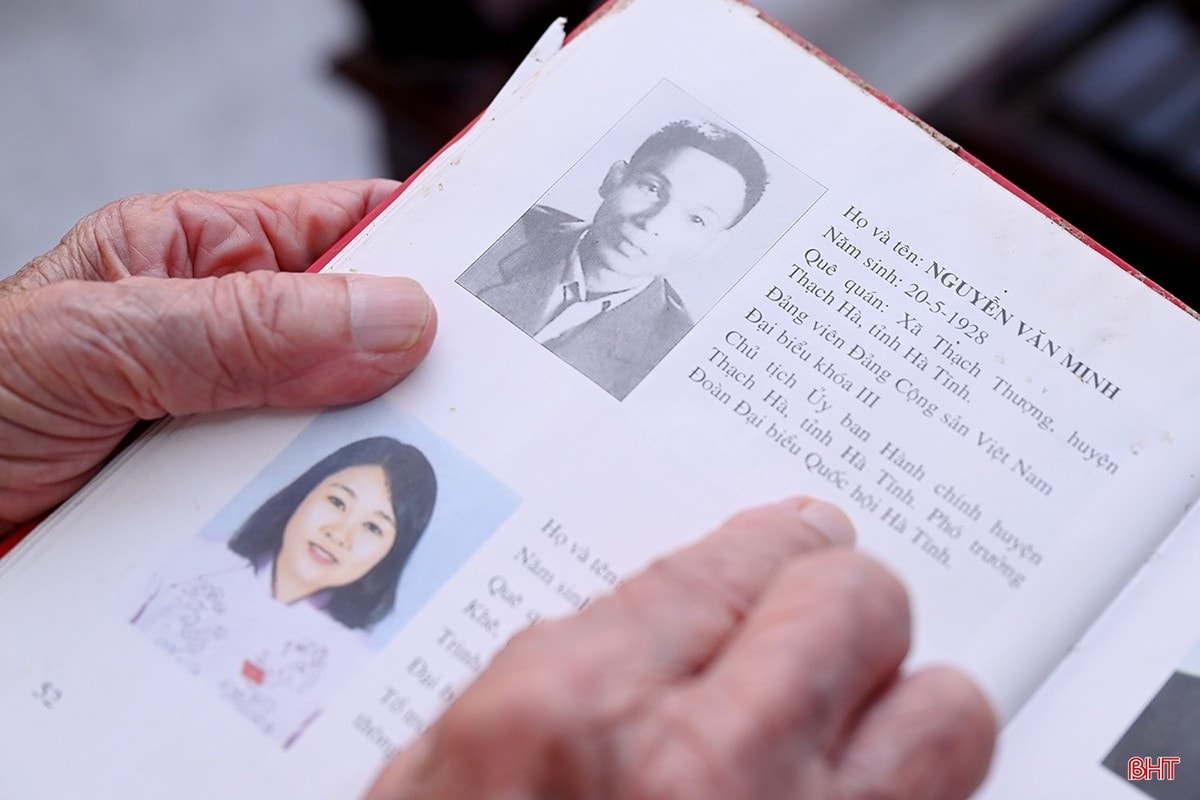 Họ và tên: NGUYỄN VĂN MINH
Năm sinh: 20-5-1928
Quê quán: Xã Thạch Thượng, huyện
Thạch Hà, tỉnh Hà Tĩnh.
Đảng viên Đảng Cộng sản Việt Nam
Đại biểu khóa III
Chủ tịch Ủy ban Hành chính huyện
Thạch Hà, tỉnh Hà Tĩnh. Phó trưởng
Đoàn Đại biểu Quốc hội Hà Tĩnh.
Họ và tên:
Năm sinh
Quê
Khê,
Trình
Đại
Tổ
thông
52
BHT